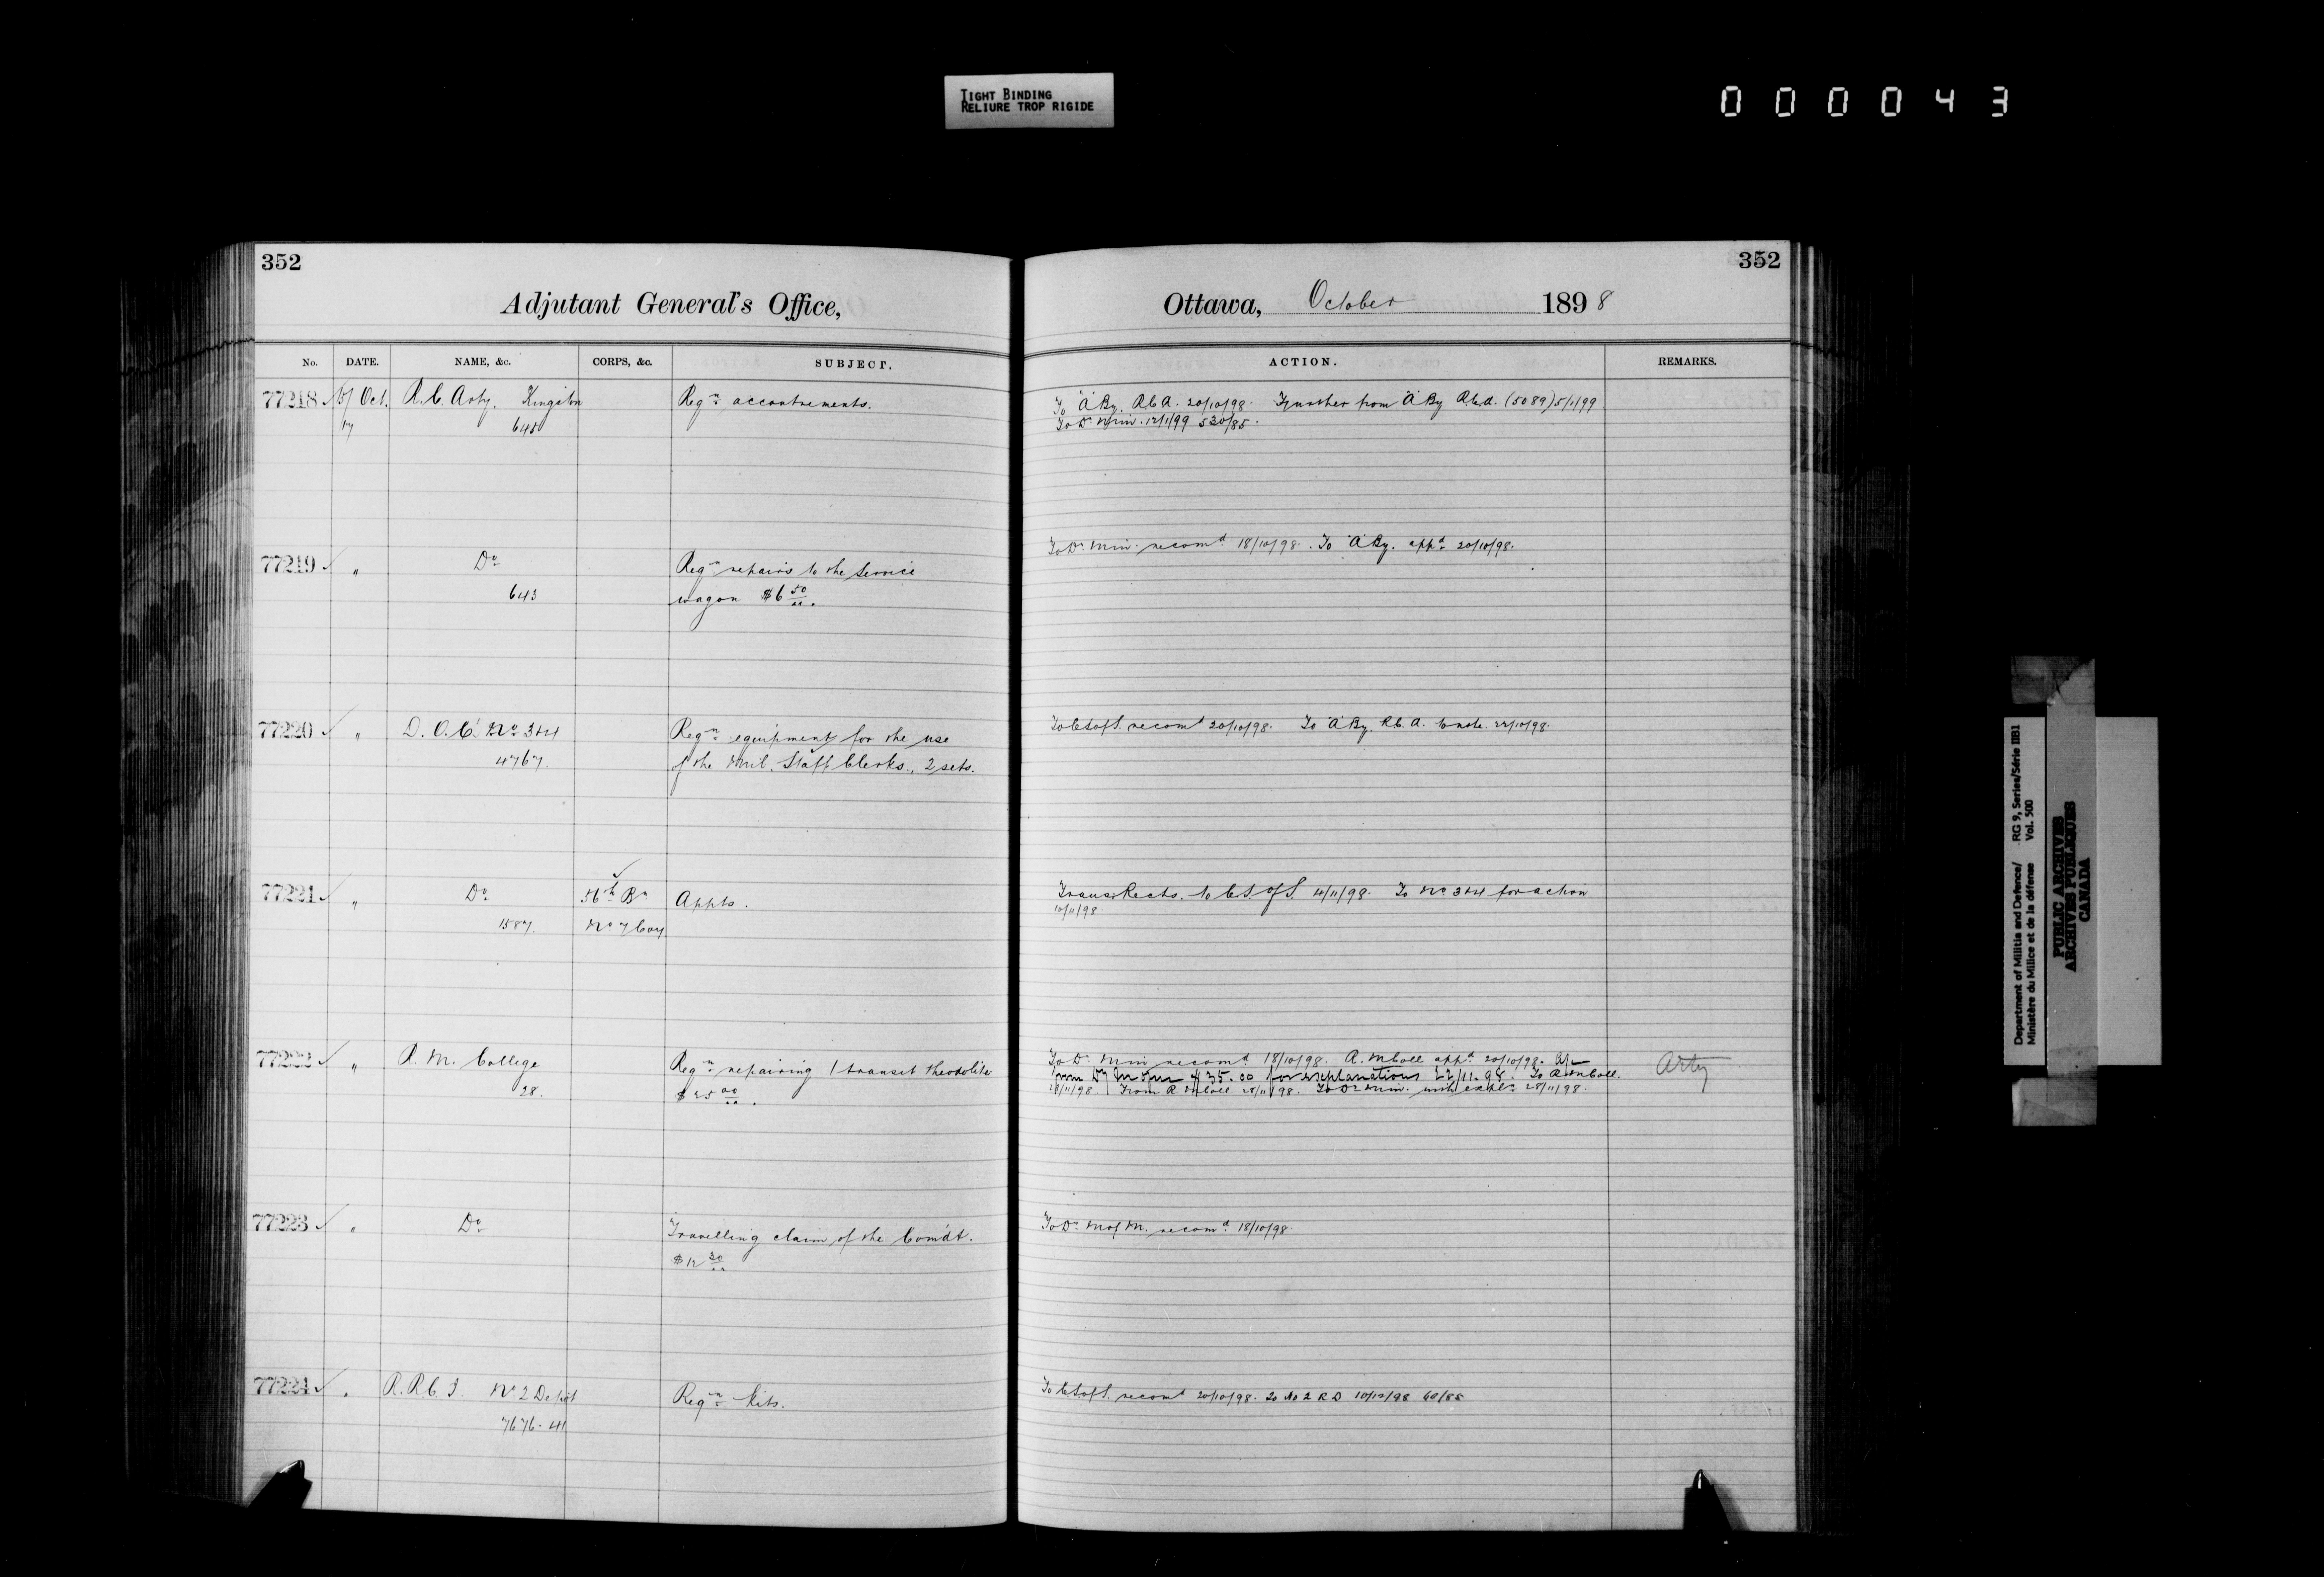 TIGHT BINDING
RELIURE TROP RIGIDE
000043
352
Adjutant General's Office,
No. DATE. NAME, &c. CORPS, &c. SUBJECT.
77218 Oct. R.C. Arty. Kingston Reqn accoutrements.
17 645
77219 " Do Reqn repairs to the Service
643 wagon $6 50
77220 " D.O.C. No 3&4 Reqn equipment for the use
4767. of the Mil. Staff Clerks., 2 sets.
77221 " Do 56th Bn Appts.
1587. No 7 Coy
77222 " R.M. College Reqn repairing 1 transit theodolite
28. 00
77223 " Do Travelling claim of the Comdt.
$12
77224 " R.R.C.I. No 2 Depot Reqn kits.
7676-41
352
Ottawa, October 1898
ACTION. REMARKS.
To "A" By. R.C.A. 20/10/98. Further from "A" By R.C.A. (5089) 5/1/99
To D. Min. 12/1/99 530/85.
To D. Min. recomd 18/10/98. To "A" By. appd 20/10/98.
To C.S. of S. recomd 20/10/98. To "A" By. R.C.A. to note. 22/10/98.
Rects. to C.S. of S. 4/11/98. To No 3&4 for action
10/11/98
To D. Min recomd 18/10/98. R.M Coll appd 20/10/98. Arty
from D. M of M $35.00 for explanations 22/11.98. To R M Coll.
28/11/98. From R M Coll 28/11/98. To D Min. with expln 28/11/98.
To D. M of M. recomd 18/10/98.
To C.S. of S. recomd 20/10/98. To No 2 R D 10/12/98 60/85
Department of Militia and Defence/ RG 9, Series/Série IIB1
Ministère du Milice et de la défense Vol. 500
PUBLIC ARCHIVES
ARCHIVES PUBLIQUES
CANADA